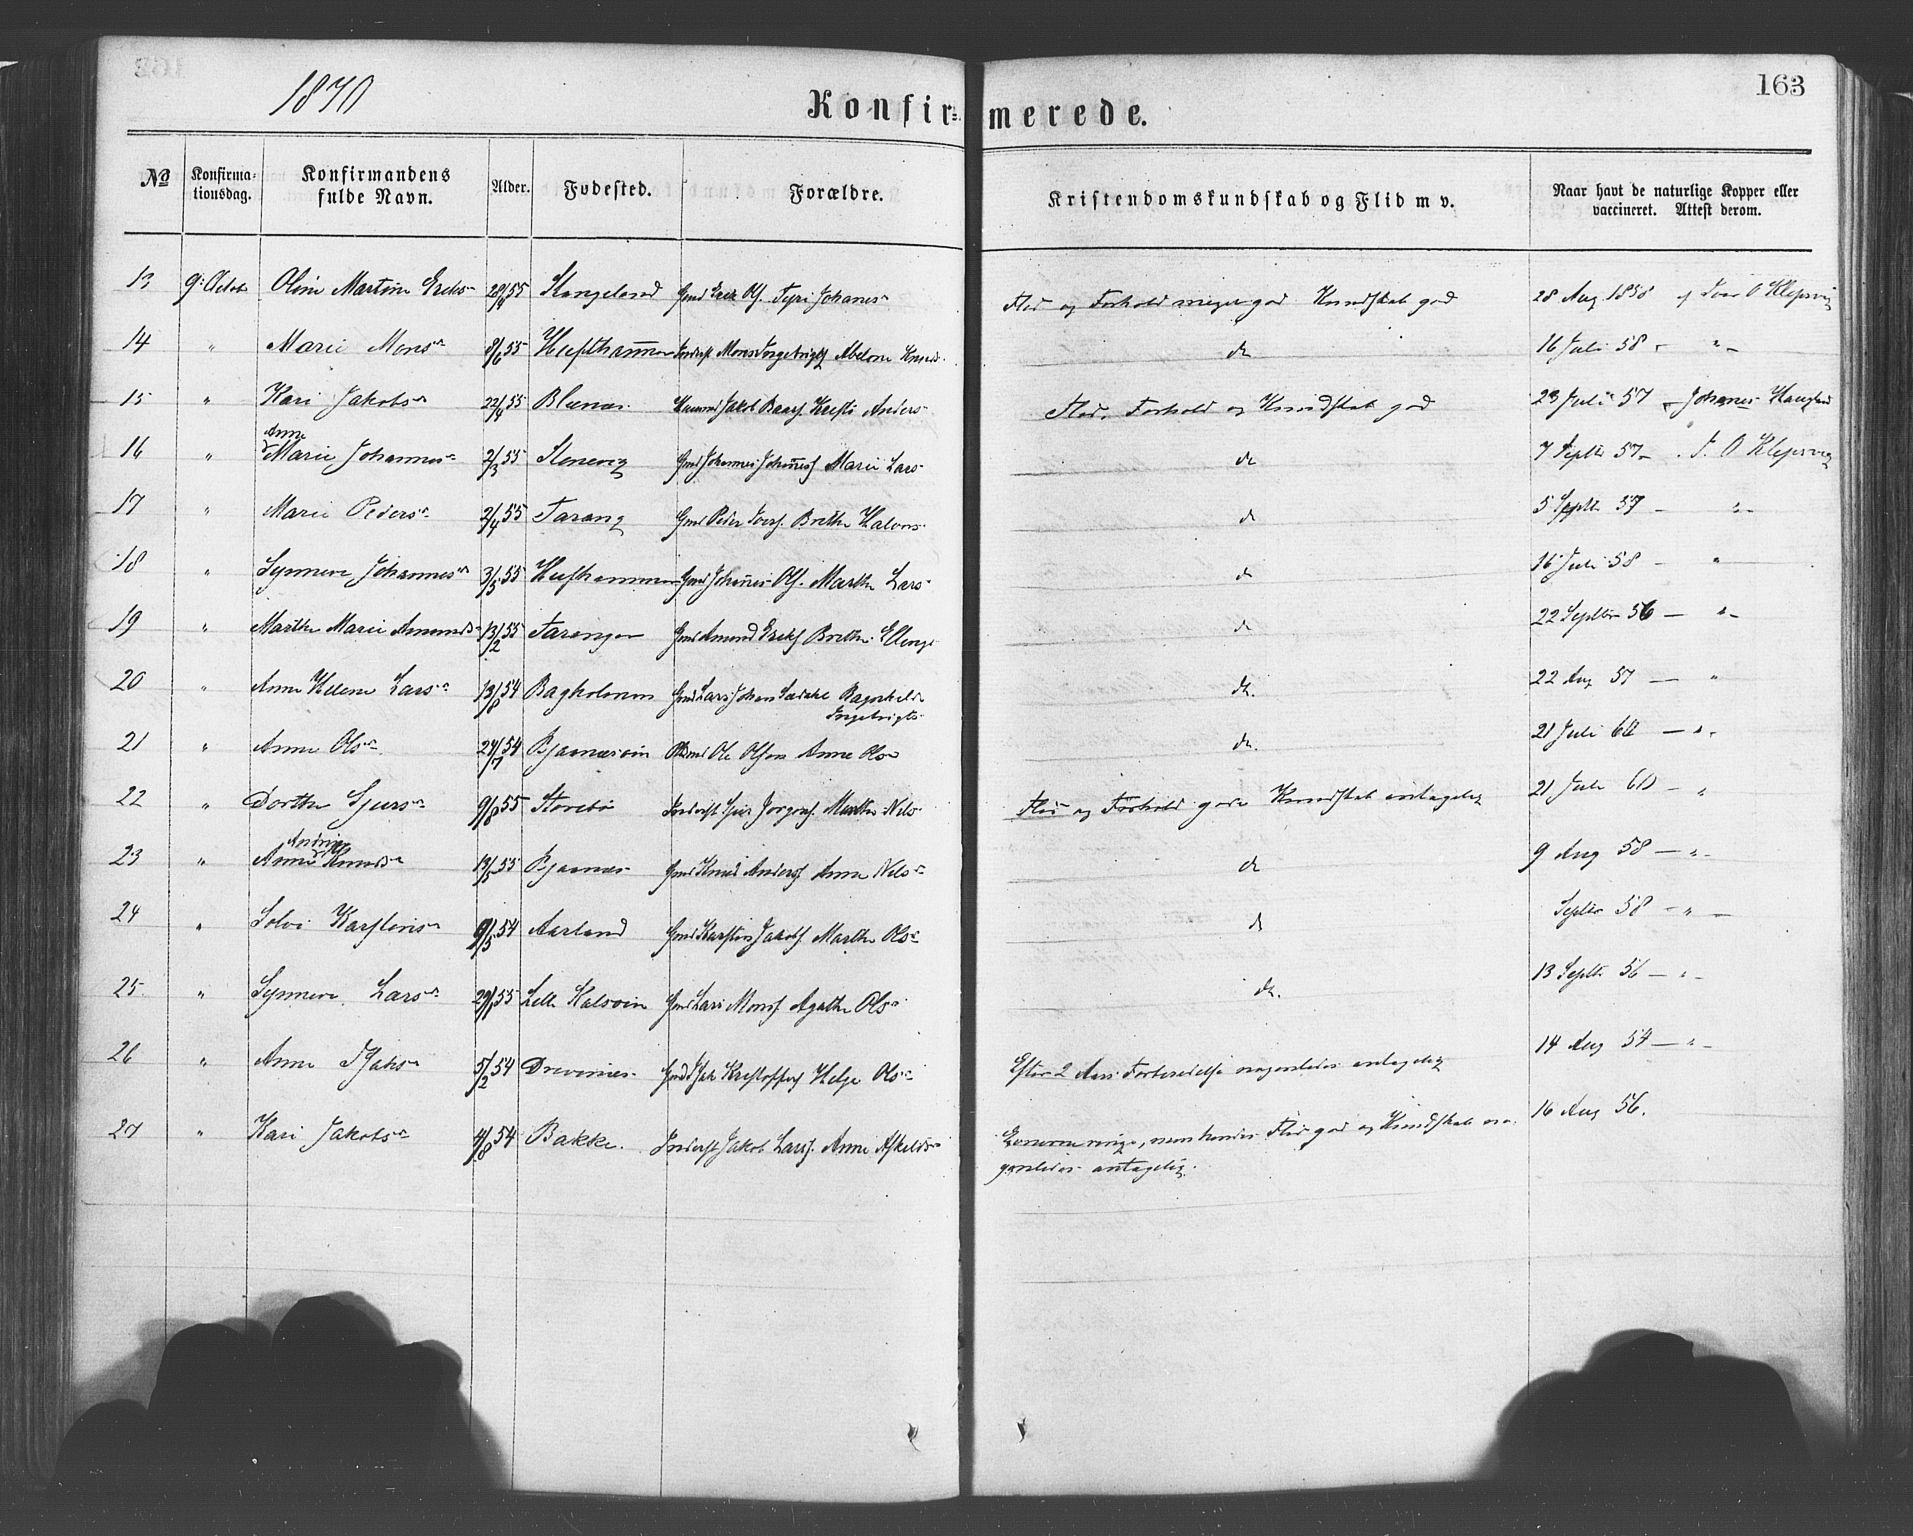 1870
163
Konfirmerede.
No Konfirmationsdag. Konfirmandens fulde Navn. Alder. Fødested. Forældre. Kristendomskundskab og Flid m v. Naar havt de naturlige Kopper eller vaccineret. Attest derom.
13 9. Octob Oline Martine Eriks 29/9 55 Stangeland Gmd Erik Ols. Syri Johanes Flid og Forhold meget god Kundskab god 28 Aug 1858 af Iver O Klepsvig
14 " Marie Mons 8/6 55 Hufthammer Inderst Mons Ingebrigts Abelone Knuds do 16 Juli 58 - " -
15 " Kari Jakobs 22/9 55 Blænes Jakob Baars Kristi Anders Flid, Forhold og Kundskab god 23 Juli 57 Johannes Haugland
16 " Anne Marie Johannes 2/3 55 Stenevig Gmd Johannes Johannes Marie Lars do 7 Septbr 57 - I. O Klepsvig
17 " Marie Peders 2/4 55 Tarang Gmd Peder Ivers. Brithe Halvors do 5 Septbr 57 - " -
18 " Synneve Johannes 3/5 55 Hufthammer Gmd Johannes Ols. Marthe Lars do 16 Juli 58 - "
19 " Marthe Marie Amunds 13/2 55 Tarangen Gmd Amund Eriks Brithe Ellings do 22 Septbr 56 - " -
20 " Anne Helene Lars 13/8 54 Bagholmen Gmd Lars Johan Ragnhild Ingebrigts do. 22 Aug 57 - "
21 " Anne Ols 24/7 54 Bjaanesøien Ole Olson Anne Ols do. 21 Juli 60 - " -
22 " Dorthe Sjurs 9/8 55 Storebø Inderst Sjur Jørgens. Marthe Nils Flid og Forhold gode Kundskab antagelig 21 Juli 60 - "
23 " Anne Andrine Knuds 19/5 55 Bjaanes Gmd Knud Anders Anne Nils do 9 Aug 58 - " -
24 " Solvi Karstens 9/5 54 Aarland Gmd Karsten Jakobs. Marthe Ols do Septbr 58 - " -
25. " Synneve Lars 29/1 55 Lille Kalsøien Gmd Lars Mons Agathe Ols do. 13 Septbr 56 - " -
26 " Anne Isaks 5/2 54 Drevsnes Gmd Isak Kristoffers Helga Ols Efter 2 Aars Forberedelse nogenledes antagelig 14 Aug 54 - " -
27 " Kari Jakobs 4/8 54 Bakke. Inderst Jakob Lars. Anne Askilds Evnerne ringe, men hendes Flid god og Kundskab no- 16 Aug 56.
genledes antagelig.